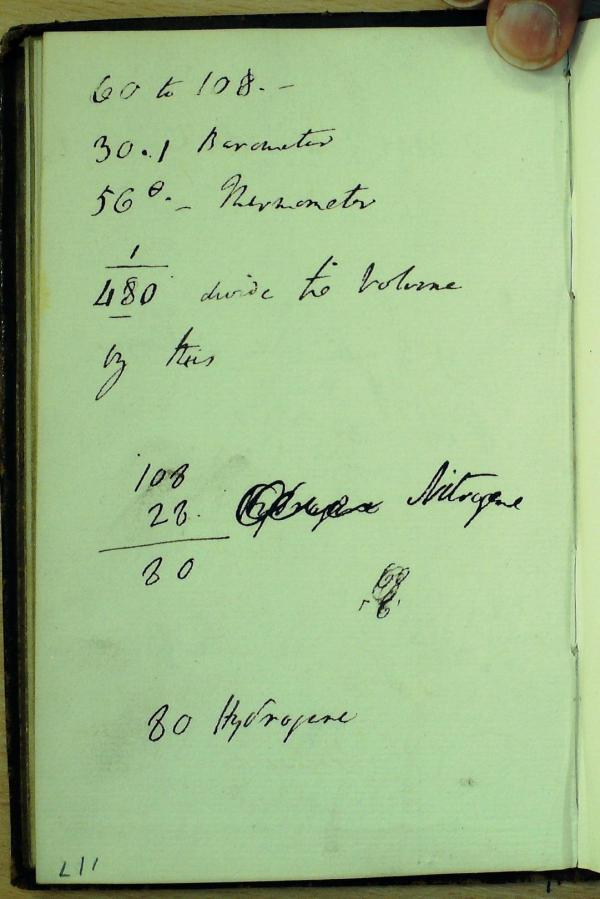 60 to 108. –
30.1 Barometer
56°. – Thermometer
1
480 divide the Volume
by this
108
28. Nitrogene
80
80 Hydrogene
117